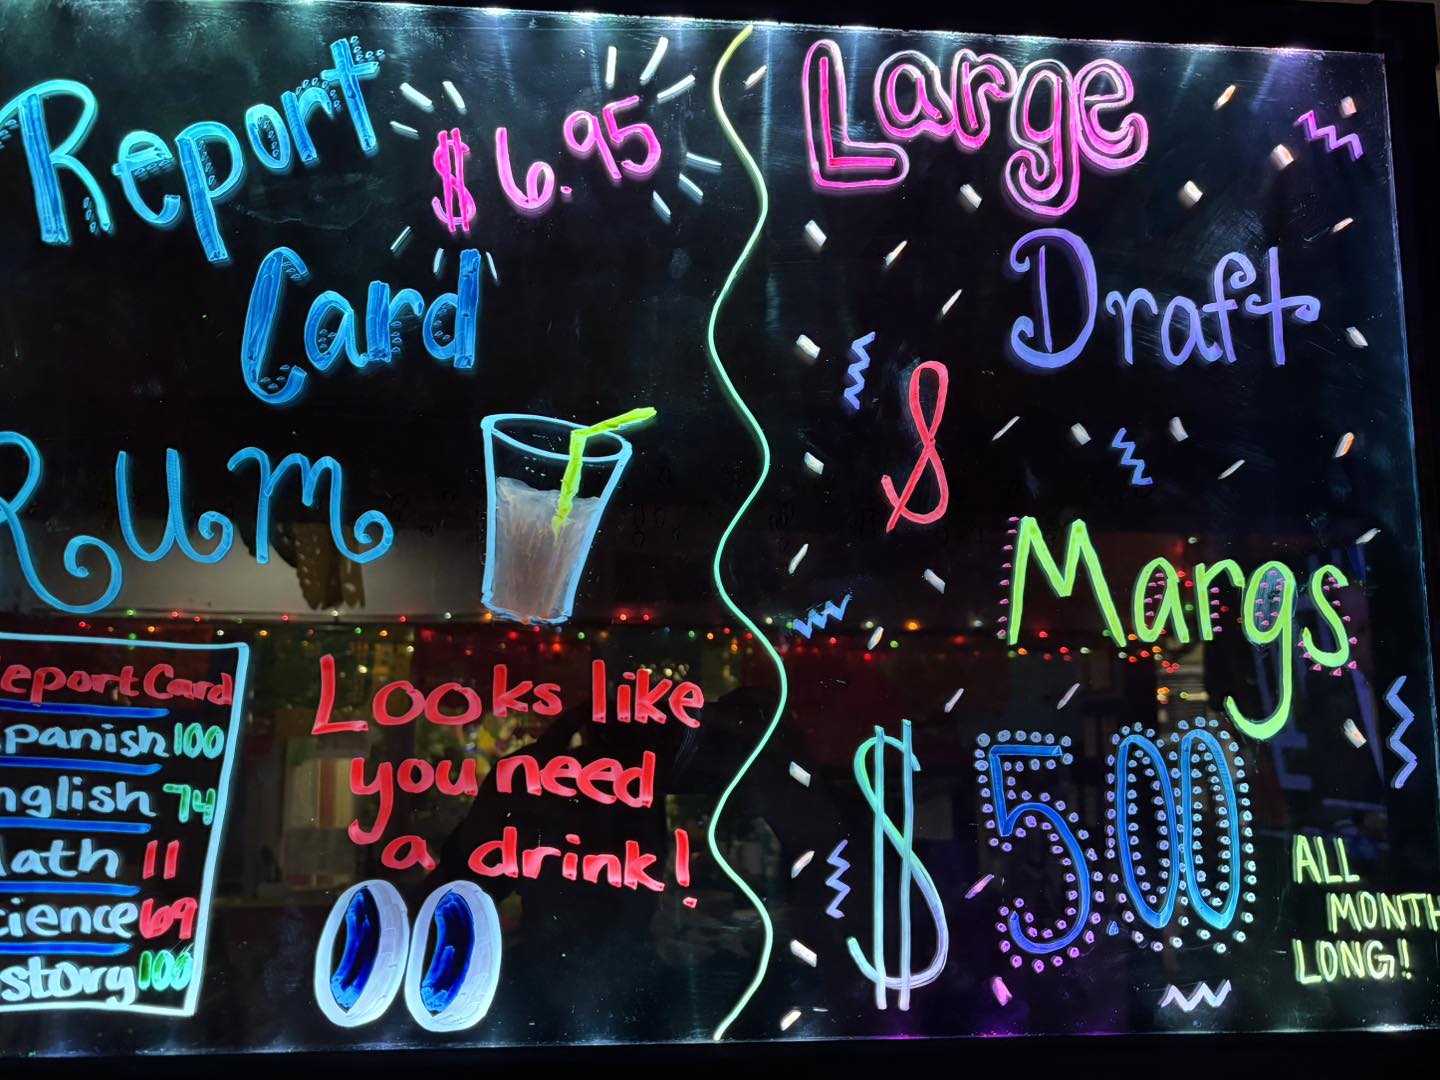 Report
Card
$6.95
Rum
Report Card
panish 100
nglish 74
ath 11
cience 69
story 100
Looks like
you need
a drink!
Large
Draft
&
Margs
$5.00
ALL
MONTH
LONG!